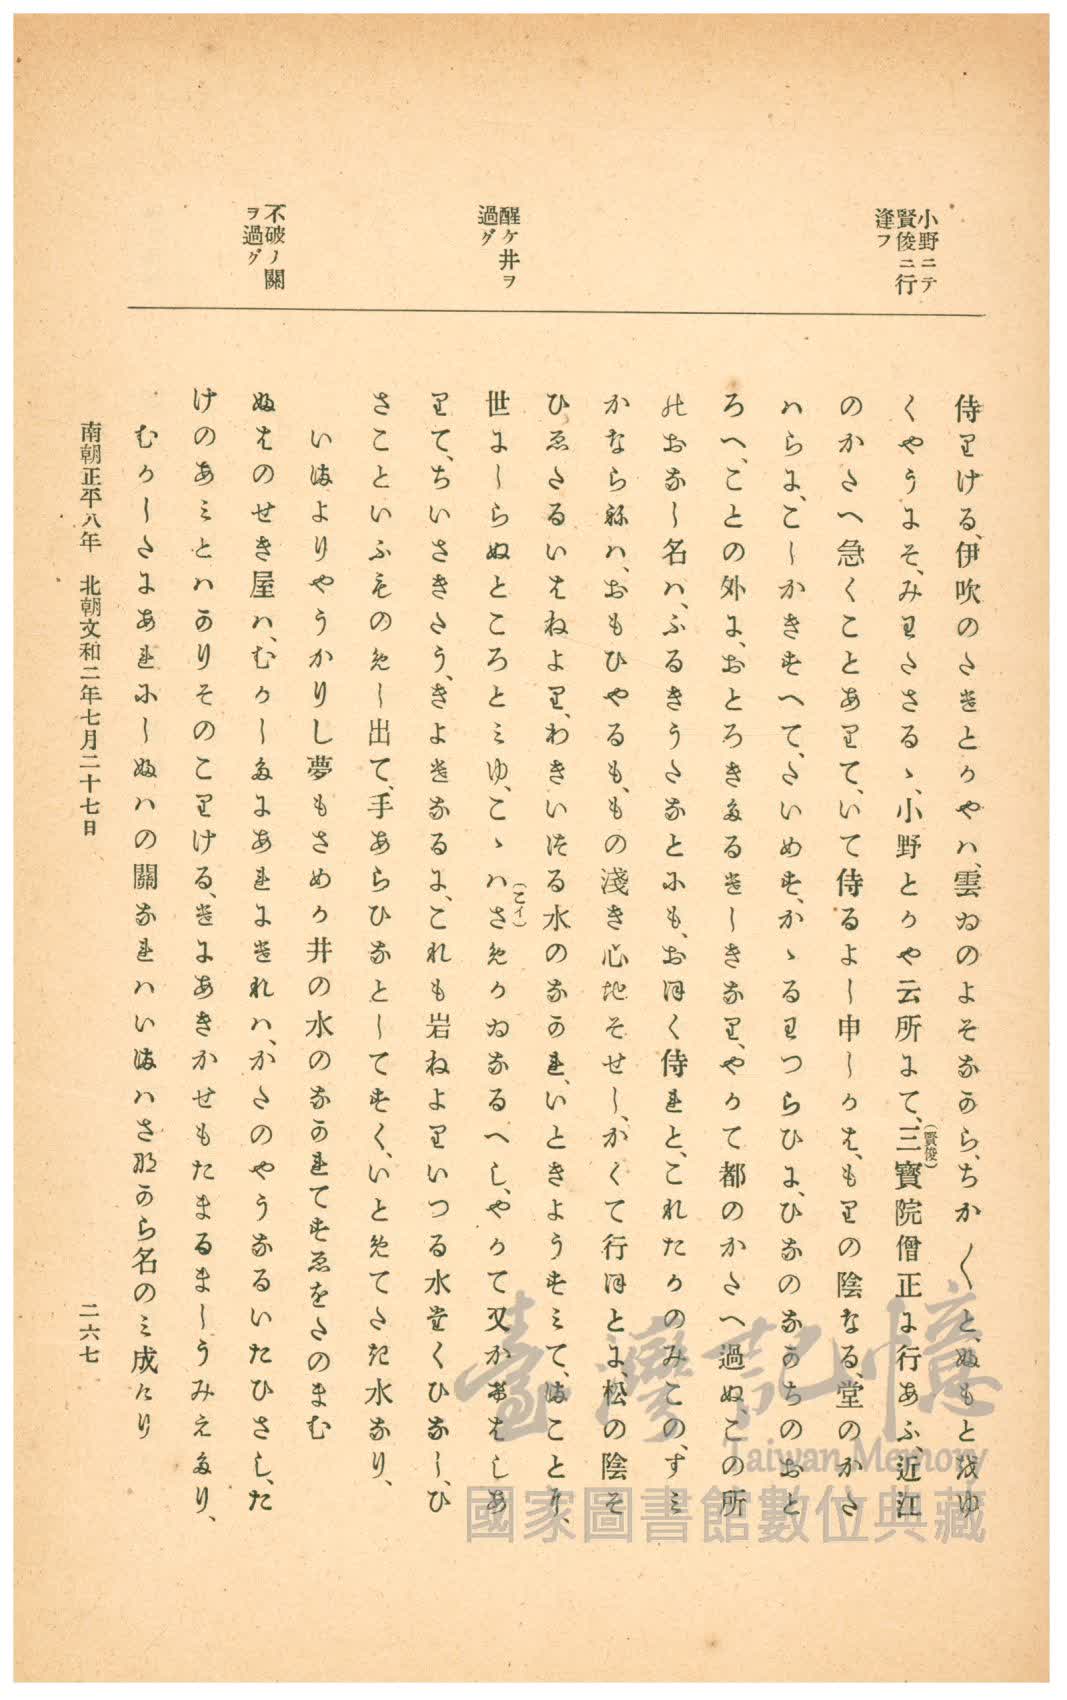 小野ニテ
賢俊ニ行
逢フ
醒ケ井ヲ
過グ
不破ノ關
ヲ過グ
侍りける、伊吹のたけとかやハ、雲ゐのよそなから、ちか〱と、ぬもとはゆ
くやうにそ、みわたさるゝ、小野とかや云所にて、三寶院僧正に行あふ、近江
(賢俊)
のかたへ急くことありて、いて侍るよし申しかは、もりの陰なる、堂のかた
ハらに、こしかきすへて、たいめす、かゝるりつらひに、ひなのなかちのおと
ろへ、ことの外に、おとろきたるけしきなり、やかて都のかたへ過ぬ、この所
のおなし名ハ、ふるきうたなとにも、おほく侍れと、これたかのみこの、すミ
かならねハ、おもひやるも、もの淺き心地そせし、かくて行ほとに、松の陰そ
ひゑたるいはねより、わきいつる水のなかれ、いときようすミて、まことに、
世にしらぬところとミゆ、こゝハさめかゐなるへし、やかて又かねはしあ
(とイ)
りて、ちいさきたう、きよけなるに、これも岩ねよりいつる水堂くひなし、ひ
さこといふものめし出て、手あらひなとしてすく、いとめてたき水なり、
いまよりやうかりし夢もさめか井の水のなかれてすゑをたのまむ
ぬはのせき屋ハ、むかしたにあれにけれハ、かたのやうなるいたひさし、た
けのあミとハかりそのこりける、けにあきかせもたまるましうみえたり、
むかしたにあれにしぬハの關なれハいまハさなから名のミ成けり
南朝正平八年　北朝文和二年七月二十七日
二六七
臺灣記憶
Taiwan Memory
國家圖書館數位典藏